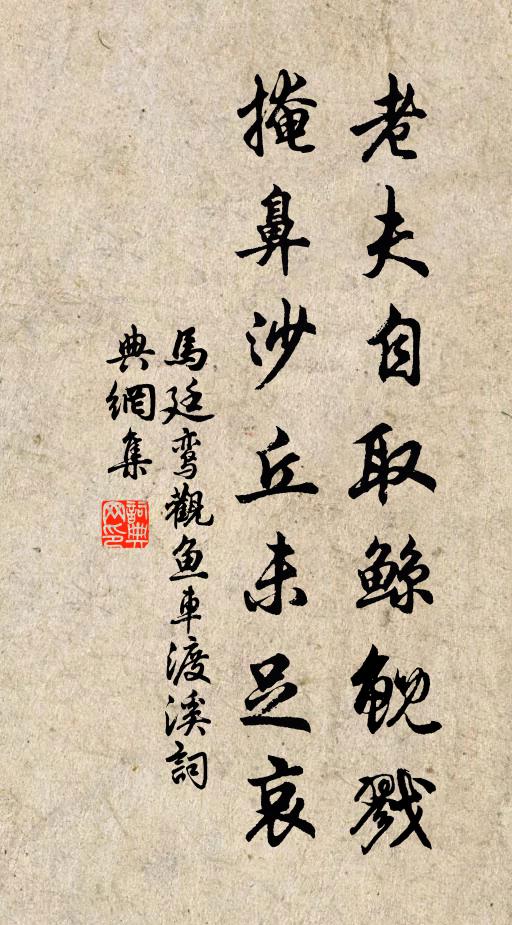 老夫自取鲸鲵戮
掩鼻沙丘未足哀
馬廷鸾觀鱼車渡溪詞
典網集
詞典網印